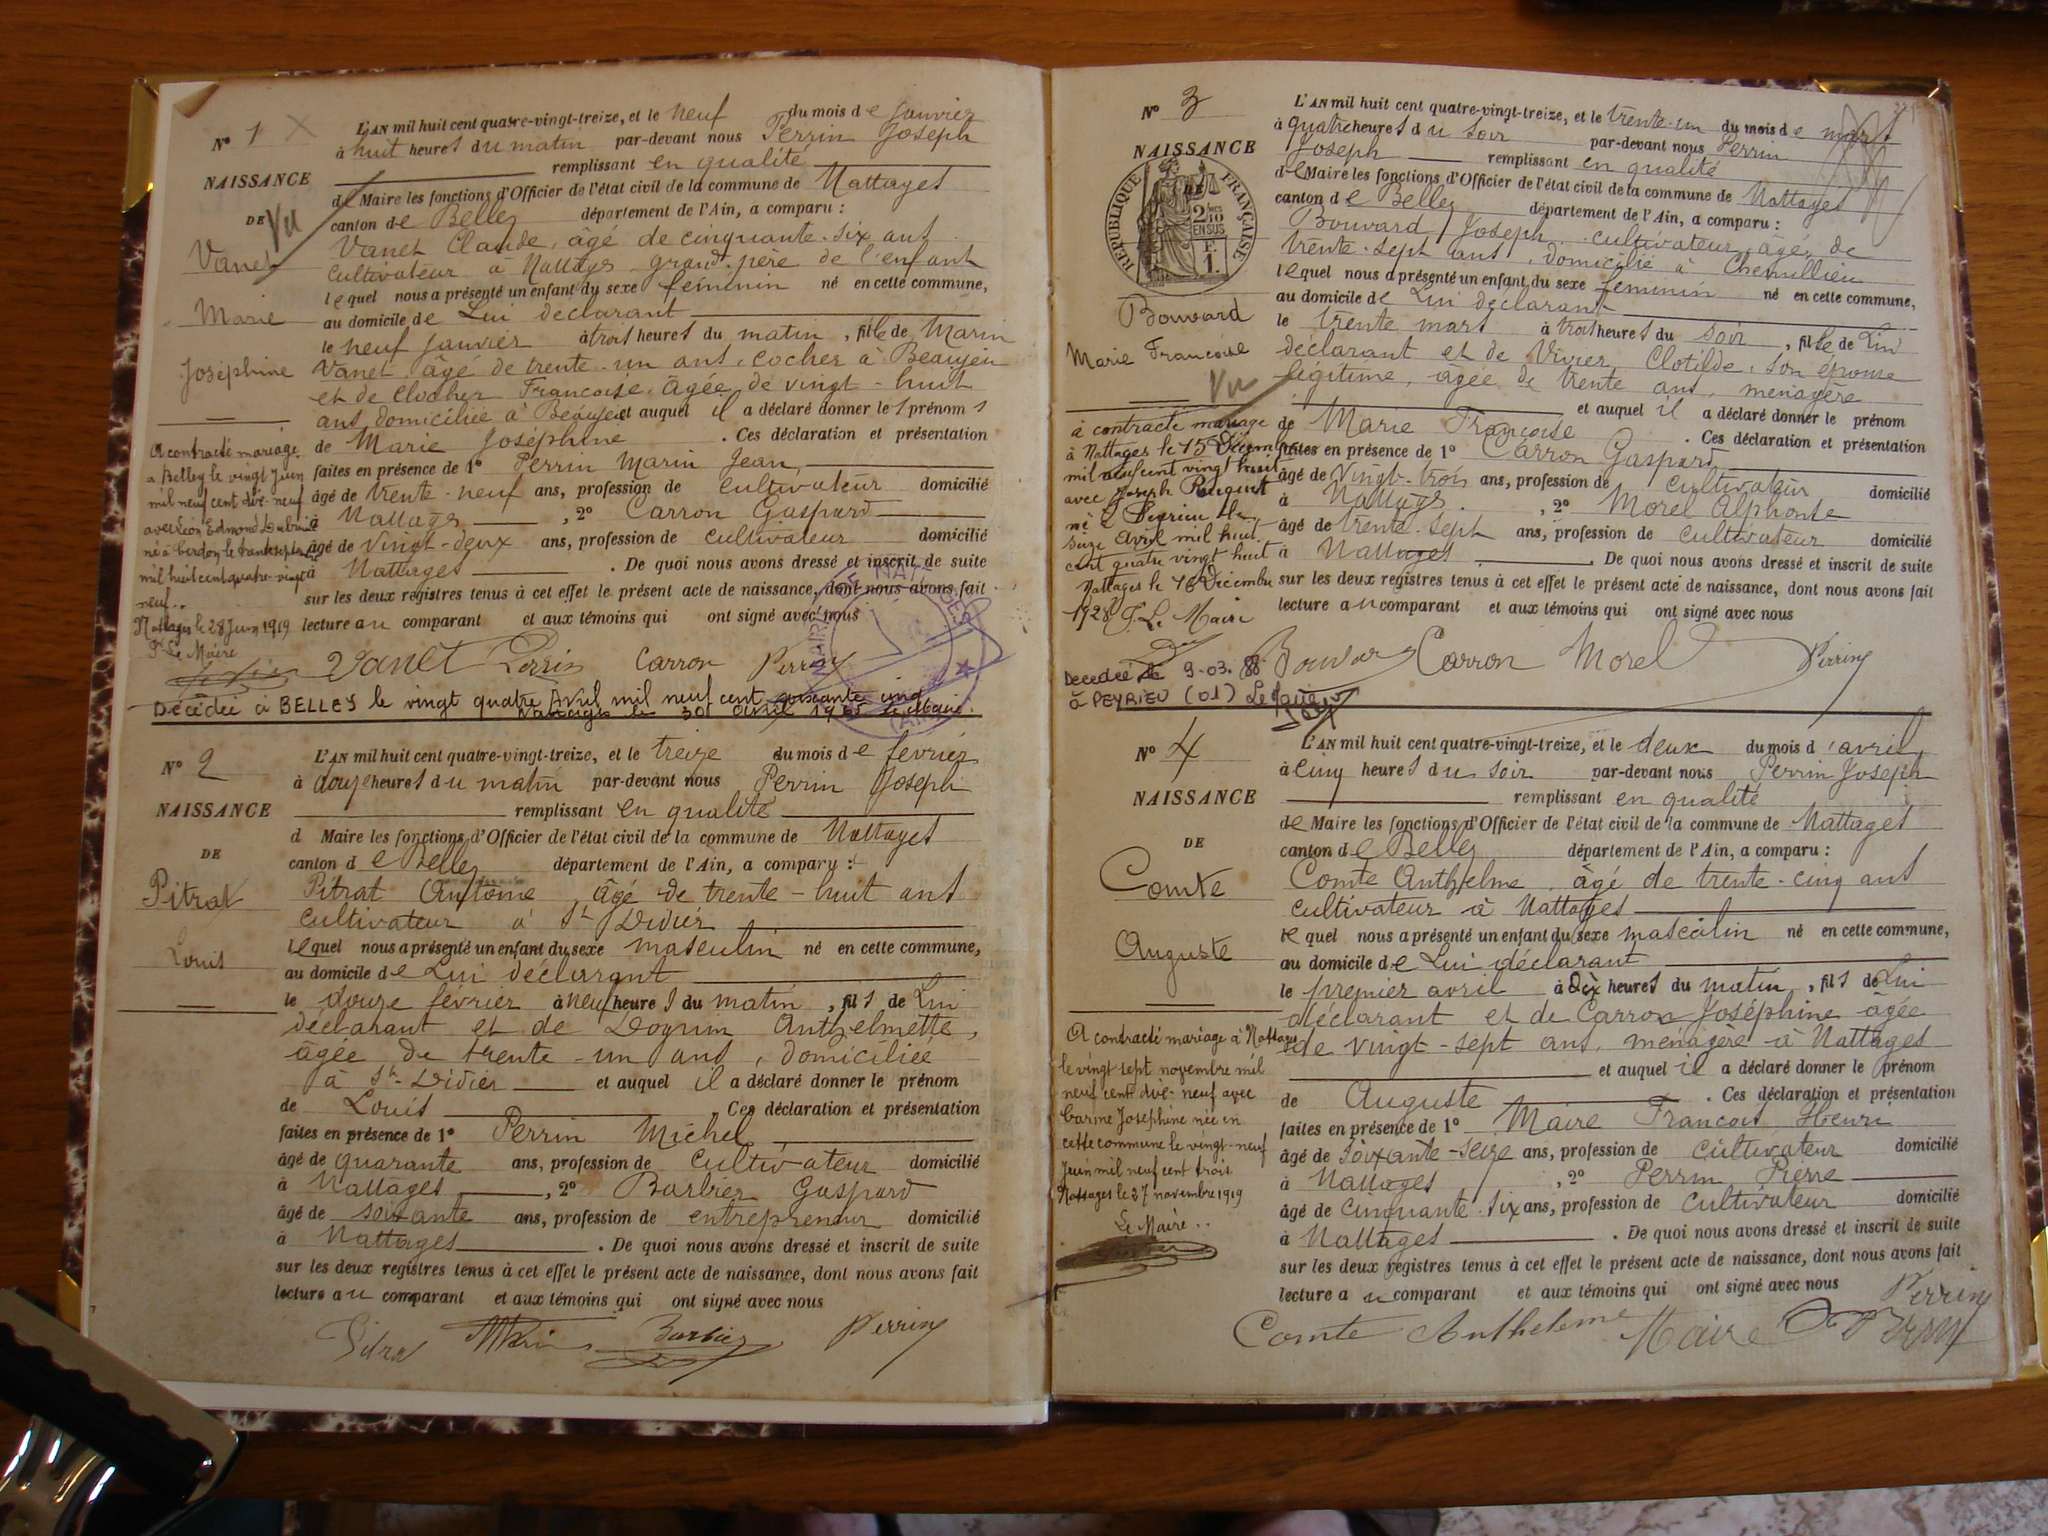 N° 1
NAISSANCE
DE
Vu
Vanet
Marie
Joséphine
L'AN mil huit cent quatre-vingt-treize, et le neuf du mois de janvier
à huit heures du matin par-devant nous Perrin Joseph
remplissant en qualité
de Maire les fonctions d'Officier de l'état civil de la commune de Nattages
canton de Belley département de l'Ain, a comparu :
Vanet Claude, âgé de cinquante-six ans
cultivateur à Nattages grand-père de l'enfant
lequel nous a présenté un enfant du sexe féminin né en cette commune,
au domicile de Lui déclarant
le neuf janvier à trois heures du matin, fille de Marin
Vanet âgé de trente-un ans, cocher à Beaujeu
et de Clocher Françoise, âgée de vingt-huit
ans domiciliée à Beaujeu et auquel il a déclaré donner les prénoms
de Marie Joséphine. Ces déclaration et présentation
faites en présence de 1° Perrin Marin Jean,
âgé de trente-neuf ans, profession de cultivateur domicilié
à Nattages, 2° Carron Gaspard
âgé de vingt-deux ans, profession de cultivateur domicilié
à Nattages. De quoi nous avons dressé et inscrit de suite
sur les deux registres tenus à cet effet le présent acte de naissance, dont nous avons fait
lecture au comparant et aux témoins qui ont signé avec nous
Vanet Perrin Carron Perrin
A contracté mariage
a Belley le vingt Juin
mil neuf cent dix-neuf
avec Léon Edmond
né à Cerdon le trente sept
mil huit cent quatre-vingt
neuf..
Nattages le 28 Juin 1919
Le Maire
Décédée à BELLEY le vingt quatre Avril mil neuf cent soixante cinq
Nattages le 30 avril 1965 le Maire.
N° 2
NAISSANCE
DE
Pitrat
Louis
L'AN mil huit cent quatre-vingt-treize, et le treize du mois de février
à douze heures du matin par-devant nous Perrin Joseph
remplissant en qualité
d Maire les fonctions d'Officier de l'état civil de la commune de Nattages
canton de Belley département de l'Ain, a comparu :
Pitrat Antoine, âgé de trente-huit ans
cultivateur à St Didier
lequel nous a présenté un enfant du sexe masculin né en cette commune,
au domicile de Lui déclarant
le douze février à neuf heures du matin, fils de Lui
déclarant et de Anthelmette,
âgée de trente-un ans, domiciliée
à St-Didier et auquel il a déclaré donner le prénom
de Louis. Ces déclaration et présentation
faites en présence de 1° Perrin Michel,
âgé de quarante ans, profession de cultivateur domicilié
à Nattages, 2° Barbier Gaspard
âgé de soixante ans, profession de entrepreneur domicilié
à Nattages. De quoi nous avons dressé et inscrit de suite
sur les deux registres tenus à cet effet le présent acte de naissance, dont nous avons fait
lecture au comparant et aux témoins qui ont signé avec nous
Barbier Perrin
N° 3
NAISSANCE
RÉPUBLIQUE FRANÇAISE
2/10 EN SUS
F. 1.
Bouvard
Marie Françoise
Vu
L'AN mil huit cent quatre-vingt-treize, et le trente-un du mois de mars
à quatre heures du soir par-devant nous Perrin
Joseph remplissant en qualité
de Maire les fonctions d'Officier de l'état civil de la commune de Nattages
canton de Belley département de l'Ain, a comparu :
Bouvard Joseph cultivateur, âgé de
trente-sept ans, domicilié à Chemillieu
lequel nous a présenté un enfant du sexe féminin né en cette commune,
au domicile de Lui déclarant
le trente mars à trois heures du soir, fille de Lui
déclarant et de Vivier Clotilde, son épouse
légitime, âgée de trente ans, ménagère
et auquel il a déclaré donner le prénom
de Marie Françoise. Ces déclaration et présentation
faites en présence de 1° Carron Gaspard
âgé de vingt-trois ans, profession de cultivateur domicilié
à Nattages, 2° Morel Alphonse
âgé de trente-sept ans, profession de cultivateur domicilié
à Nattages. De quoi nous avons dressé et inscrit de suite
sur les deux registres tenus à cet effet le présent acte de naissance, dont nous avons fait
lecture au comparant et aux témoins qui ont signé avec nous
Bouvard Carron Morel Perrin
à contracté mariage
à Nattages le 15 Décembre
mil neuf cent vingt huit
avec Joseph
né à Peyrieu le
seize Avril mil huit
cent quatre vingt huit
Nattages le 16 Décembre
1928 Le Maire
Décédée le 9-03-88
à PEYRIEU (01) Le Maire
N° 4
NAISSANCE
DE
Comte
Auguste
L'AN mil huit cent quatre-vingt-treize, et le deux du mois d'avril
à cinq heures du soir par-devant nous Perrin Joseph
remplissant en qualité
de Maire les fonctions d'Officier de l'état civil de la commune de Nattages
canton de Belley département de l'Ain, a comparu :
Comte Anthelme, âgé de trente-cinq ans
cultivateur à Nattages
lequel nous a présenté un enfant du sexe masculin né en cette commune,
au domicile de Lui déclarant
le premier avril à dix heures du matin, fils de Lui
déclarant et de Carron Joséphine âgée
de vingt-sept ans, ménagère à Nattages
et auquel il a déclaré donner le prénom
de Auguste. Ces déclaration et présentation
faites en présence de 1° Maire François Henri
âgé de soixante-seize ans, profession de cultivateur domicilié
à Nattages, 2° Perrin Pierre
âgé de cinquante-six ans, profession de cultivateur domicilié
à Nattages. De quoi nous avons dressé et inscrit de suite
sur les deux registres tenus à cet effet le présent acte de naissance, dont nous avons fait
lecture au comparant et aux témoins qui ont signé avec nous
Perrin
Comte Anthelme Maire Perrin
A contracté mariage à Nattages
le vingt sept novembre mil
neuf cent dix-neuf avec
Carine Joséphine née en
cette commune le vingt-neuf
Juin mil neuf cent trois
Nattages le 27 novembre 1919
Le Maire..